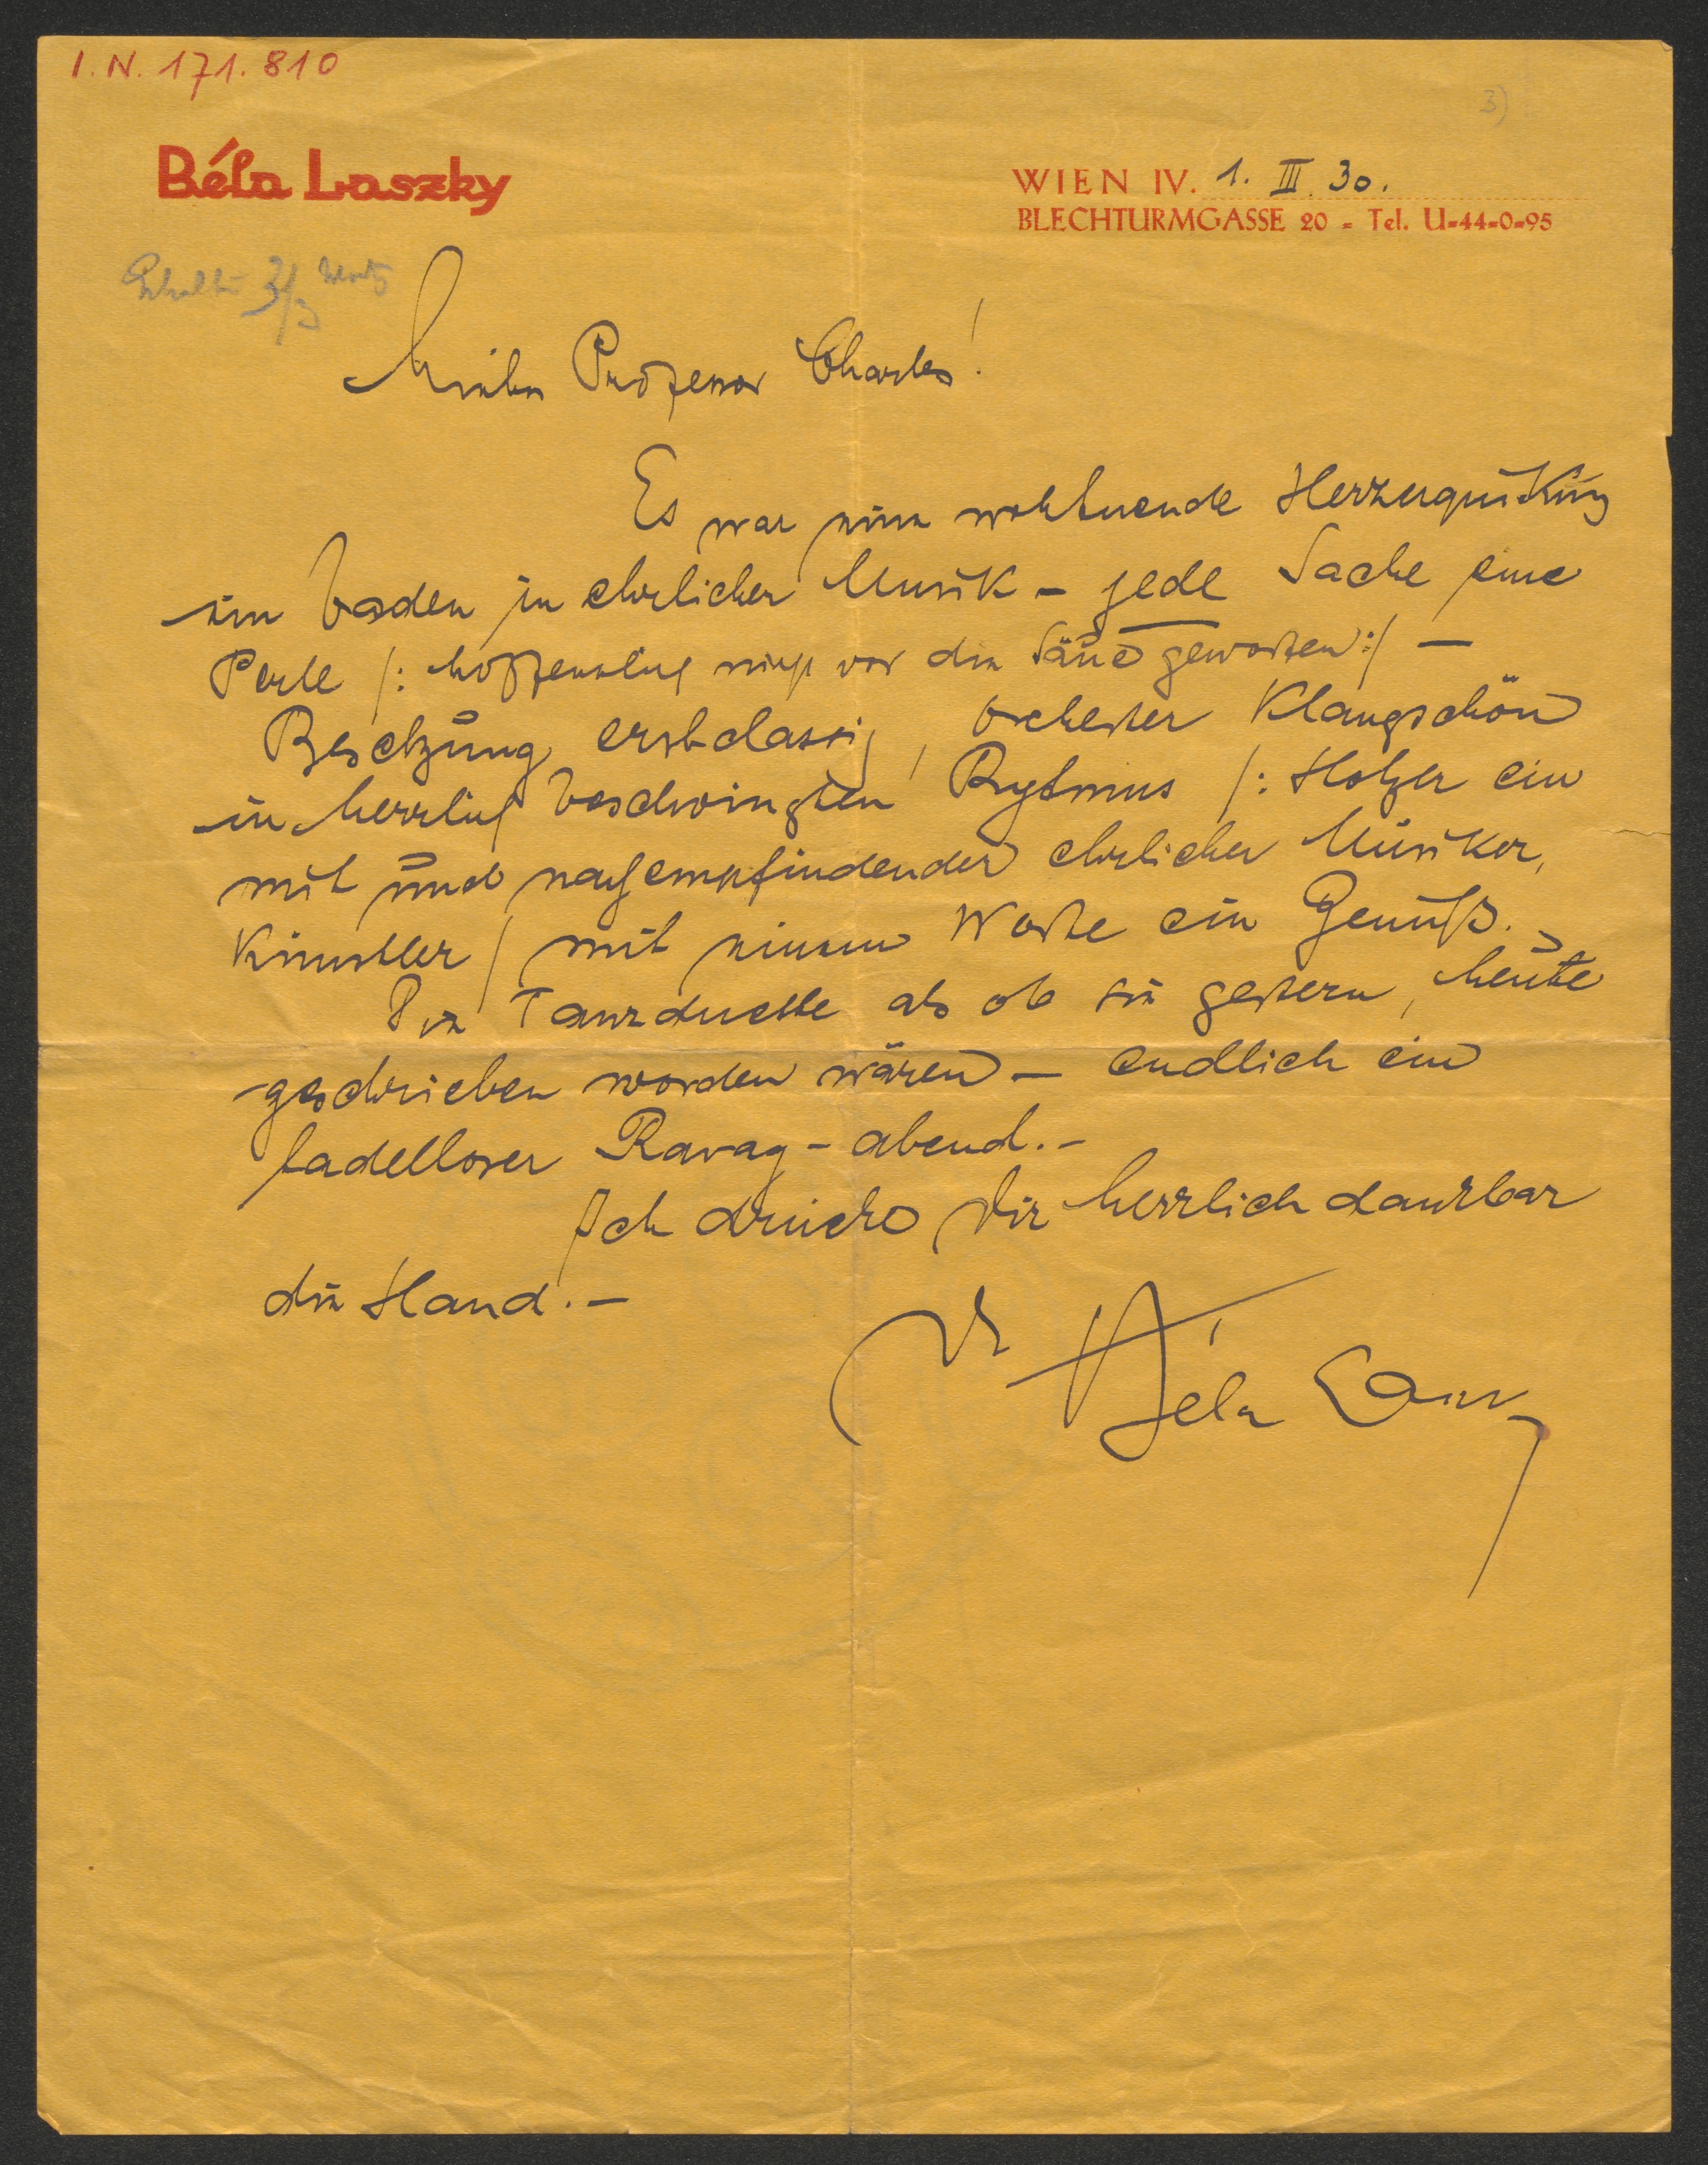 I. N. 171.810
3)
Béla Laszky
WIEN IV. 1. III. 30.
BLECHTURMGASSE 20 - Tel. U-44-0-95
3/3
Professor Charles!
Es war eine wohltuende Herzerquikung
ein baden in ehrlicher Musik - jede Sache eine
Perle /: hoffentlich nicht vor die Säue geworfen :/ —
Besetzung erstclassig, Orchester Klangschön
in herrlich beschwingten Rytmus /: Holzer ein
mit und nachempfindender ehrlicher Musiker,
Künstler / mit einem Worte ein Genuß.
Die Tanzduette als ob sie gestern, heute
geschrieben worden wären — endlich ein
tadelloser Ravag - abend. -
Ich drücke Dir herzlich dankbar
die Hand. —
Béla Laszky